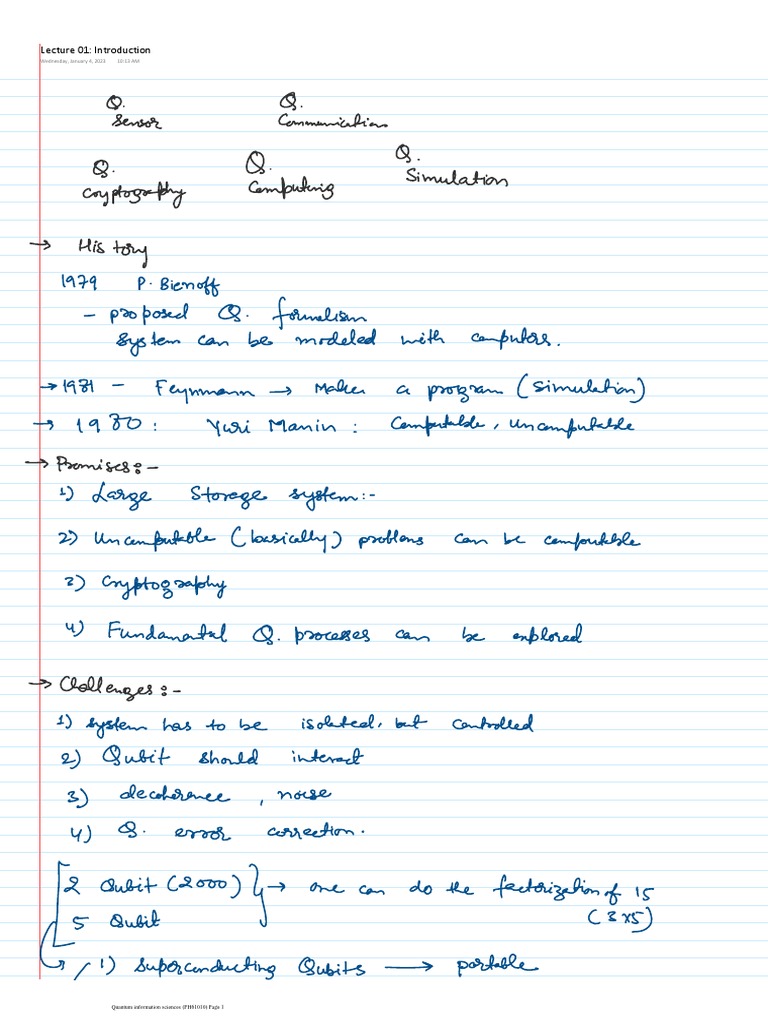 Lecture 01: Introduction
Wednesday, January 4, 2023 10:13 AM
Q. Sensor
Q. Communication
Q. Cryptography
Q. Computing
Q. Simulation
→ History
1979 P. Bienoff
- proposed Q. formalism
system can be modeled with computers.
→ 1981 - Feynmann → Makes a program (simulation)
→ 1980: Yuri Manin: Computable, Uncomputable
→ Promises:-
1) Large Storage system:-
2) Uncomputable (basically) problems can be computable
3) Cryptography
4) Fundamental Q. processes can be explored
→ Challenges:-
1) system has to be isolated, but controlled
2) Qubit should interact
3) decoherence, noise
4) Q. error correction.
2 Qubit (2000) → one can do the factorization of 15
5 Qubit (3x5)
1) Superconducting Qubits → portable
Quantum information sciences (PH61010) Page 1